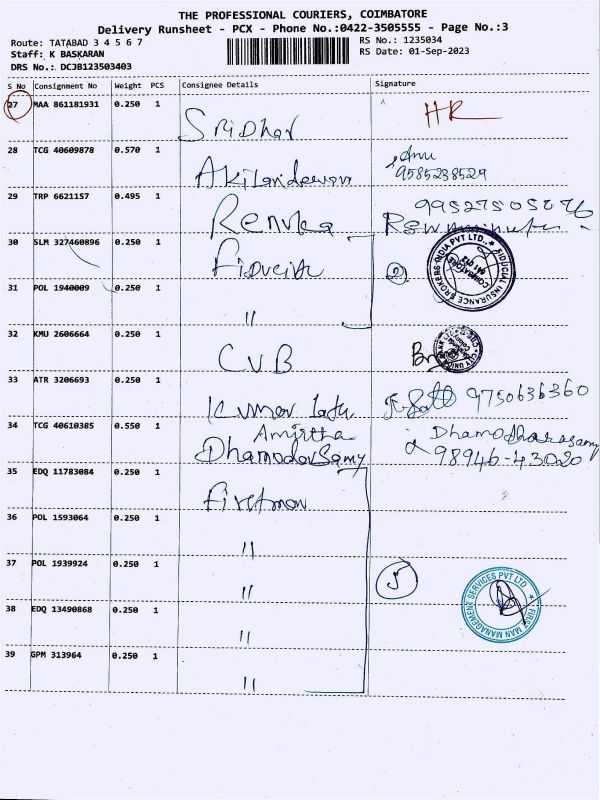 THE PROFESSIONAL COURIERS, COIMBATORE
Delivery Runsheet - PCX - Phone No.:0422-3505555 - Page No.:3
Route: TATABAD 3 4 5 6 7 RS No.: 1235034
Staff: K BASKARAN RS Date: 01-Sep-2023
DRS No.: DCJB123503403
S No Consignment No Weight PCS Consignee Details Signature
27 MAA 861181931 0.250 1 Sridhar HR
28 TCG 40609878 0.570 1 Akilandeswari Anu
9585238529
29 TRP 6621157 0.495 1 Renuka
30 SLM 327460896 0.250 1 2
FIDUCIAL INSURANCE BROKERS INDIA PVT LTD.,
31 POL 1940009 0.250 1 "
32 KMU 2606664 0.250 1 CUB
33 ATR 3206693 0.250 1 Kumar 9750636360
34 TCG 40610385 0.550 1 Amirtha Dhamodharasamy
DhamodarSamy 98946-43020
35 EDQ 11783084 0.250 1 Firstman
36 POL 1593064 0.250 1 "
37 POL 1939924 0.250 1 " 5
FIRST MAN MANAGEMENT SERVICES PVT LTD
38 EDQ 13490868 0.250 1 "
39 GPM 313964 0.250 1 "